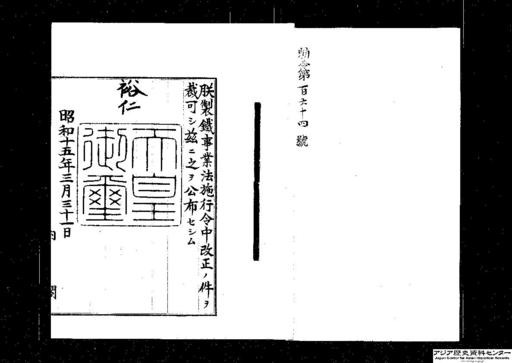 勅令第百六十四號
朕製鐵事業法施行令中改正ノ件ヲ
裁可シ茲ニ之ヲ公布セシム
裕仁
天皇
御璽
昭和十五年三月三十一日
内閣
アジア歴史資料センター
Japan Center for Asian Historical Records